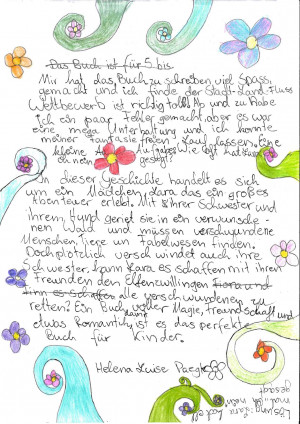 Das Buch ist für 5 bis
Mir hat das Buch zu schreiben viel Spass
gemacht und ich finde der Stadt-Land-Fluss
Wettbewerb ist richtig toll! Ab und zu habe
ich ein paar Fehler gemacht, aber es war
eine mega Unterhaltung und ich konnte
meiner Fantasie freien Lauf lassen. Eine
kleine wie oft hat Kiara
oh nein gesagt?
In dieser Geschichte handelt es sich
um ein Mädchen, das ein großes
Abenteuer erlebt. Mit ihrer Schwester und
ihrem Hund geriet sie in ein verwunsche-
nen Wald und müssen verschwundene
Menschen, Tiere un Fabelwesen finden.
Doch plötzlich verschwindet auch ihre
Schwester, kann Kiara es schaffen mit ihren
Freunden den Elfenzwillingen Fiora und
Finn es schaffen alle verschwundenen zu
retten? Ein Buch voller Magie, Freundschaft und
etwas Romantik, ist es das perfekte
Buch für Kinder.
Helena Luise
Lösung:
mal oh nein
gesagt